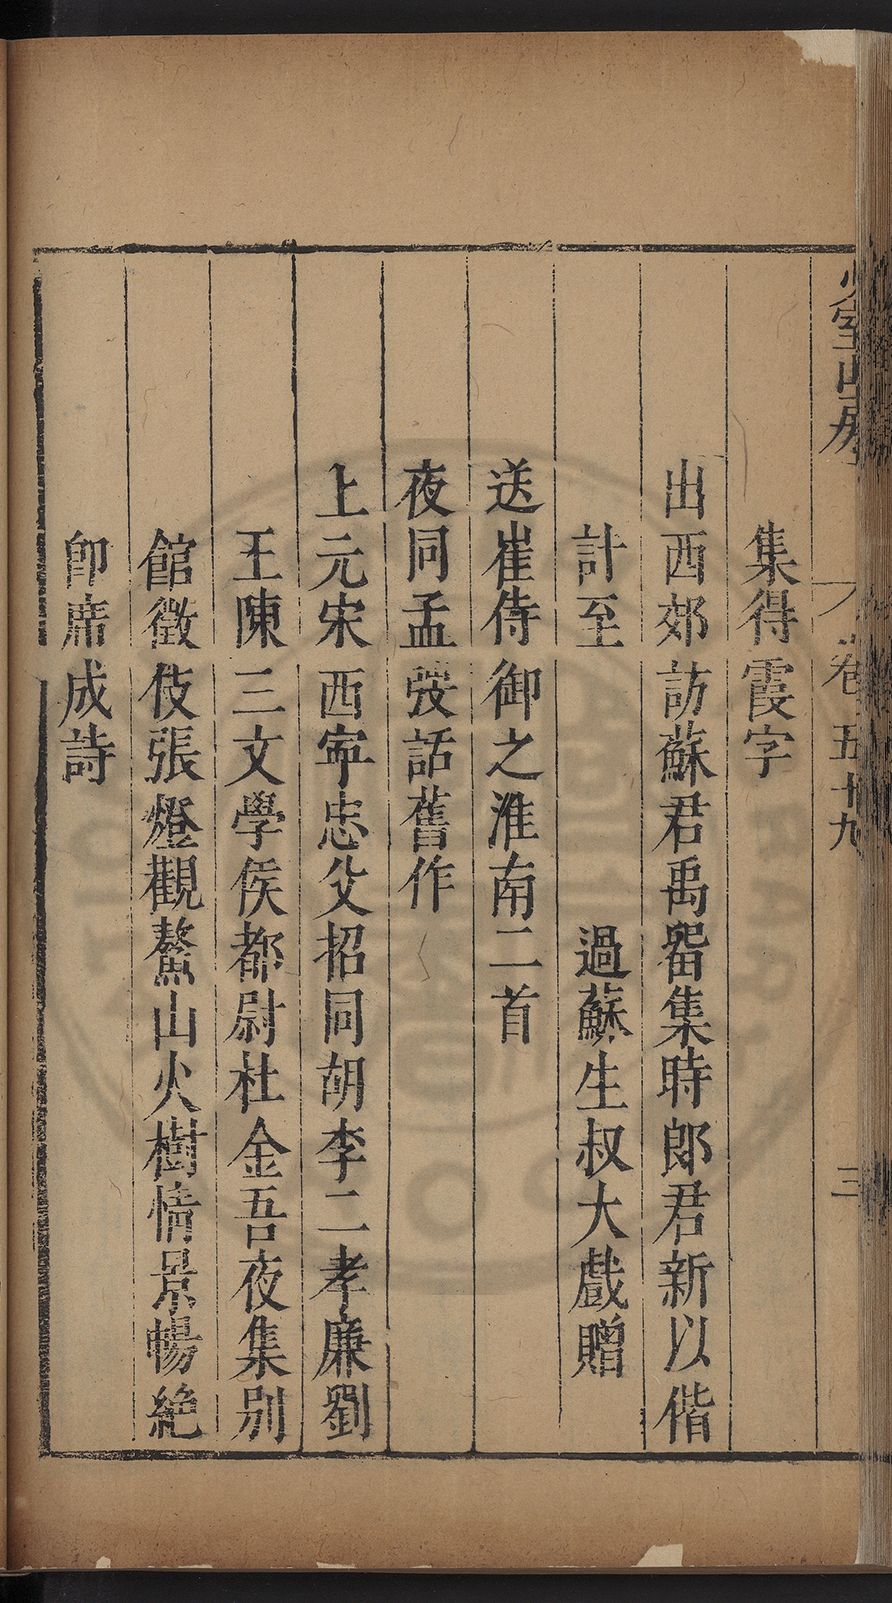 少室山房
卷五十九
三
集得霞字
出西郊訪蘇君禹畱集時郎君新以偕
計至　過蘇生叔大戲贈
送崔侍御之淮南二首
夜同孟弢話舊作
上元宋西寧忠父招同胡李二孝廉劉
王陳三文學侯都尉杜金吾夜集別
館徵伎張燈觀鰲山火樹情景暢絶
即席成詩